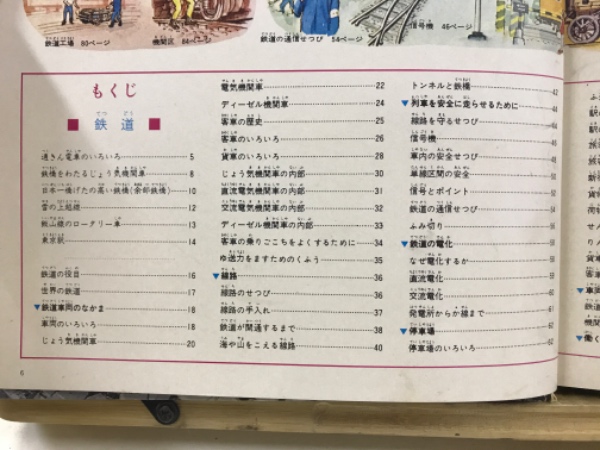 鉄道工場 80ページ
機関区 84ページ
鉄道の通信せつび 54ページ
信号機 46ページ
もくじ
■ 鉄道 ■
通きん電車のいろいろ 5
鉄橋をわたるじょう気機関車 8
日本一橋げたの高い鉄橋(余部鉄橋) 10
雪の上越線 12
飯山線のロータリー車 13
東京駅 14
鉄道の役目 16
世界の鉄道 17
▼鉄道車両のなかま 18
車両のいろいろ 18
じょう気機関車 20
電気機関車 22
ディーゼル機関車 24
客車の歴史 25
客車のいろいろ 26
貨車のいろいろ 28
じょう気機関車の内部 30
直流電気機関車の内部 31
交流電気機関車の内部 32
ディーゼル機関車の内部 33
客車の乗りごこちをよくするために 34
ゆ送力をますためのくふう 35
▼線路 36
線路のせつび 36
線路の手入れ 37
鉄道が開通するまで 38
海や山をこえる線路 40
トンネルと鉄橋 42
▼列車を安全に走らせるために 44
線路を守るせつび 44
信号機
車内の安全せつび
単線区間の安全
信号とポイント
鉄道の通信せつび 54
ふみ切り
▼鉄道の電化
なぜ電化するか
直流電化
交流電化 60
発電所からか線まで 61
▼停車場 62
停車場のいろいろ 62
6